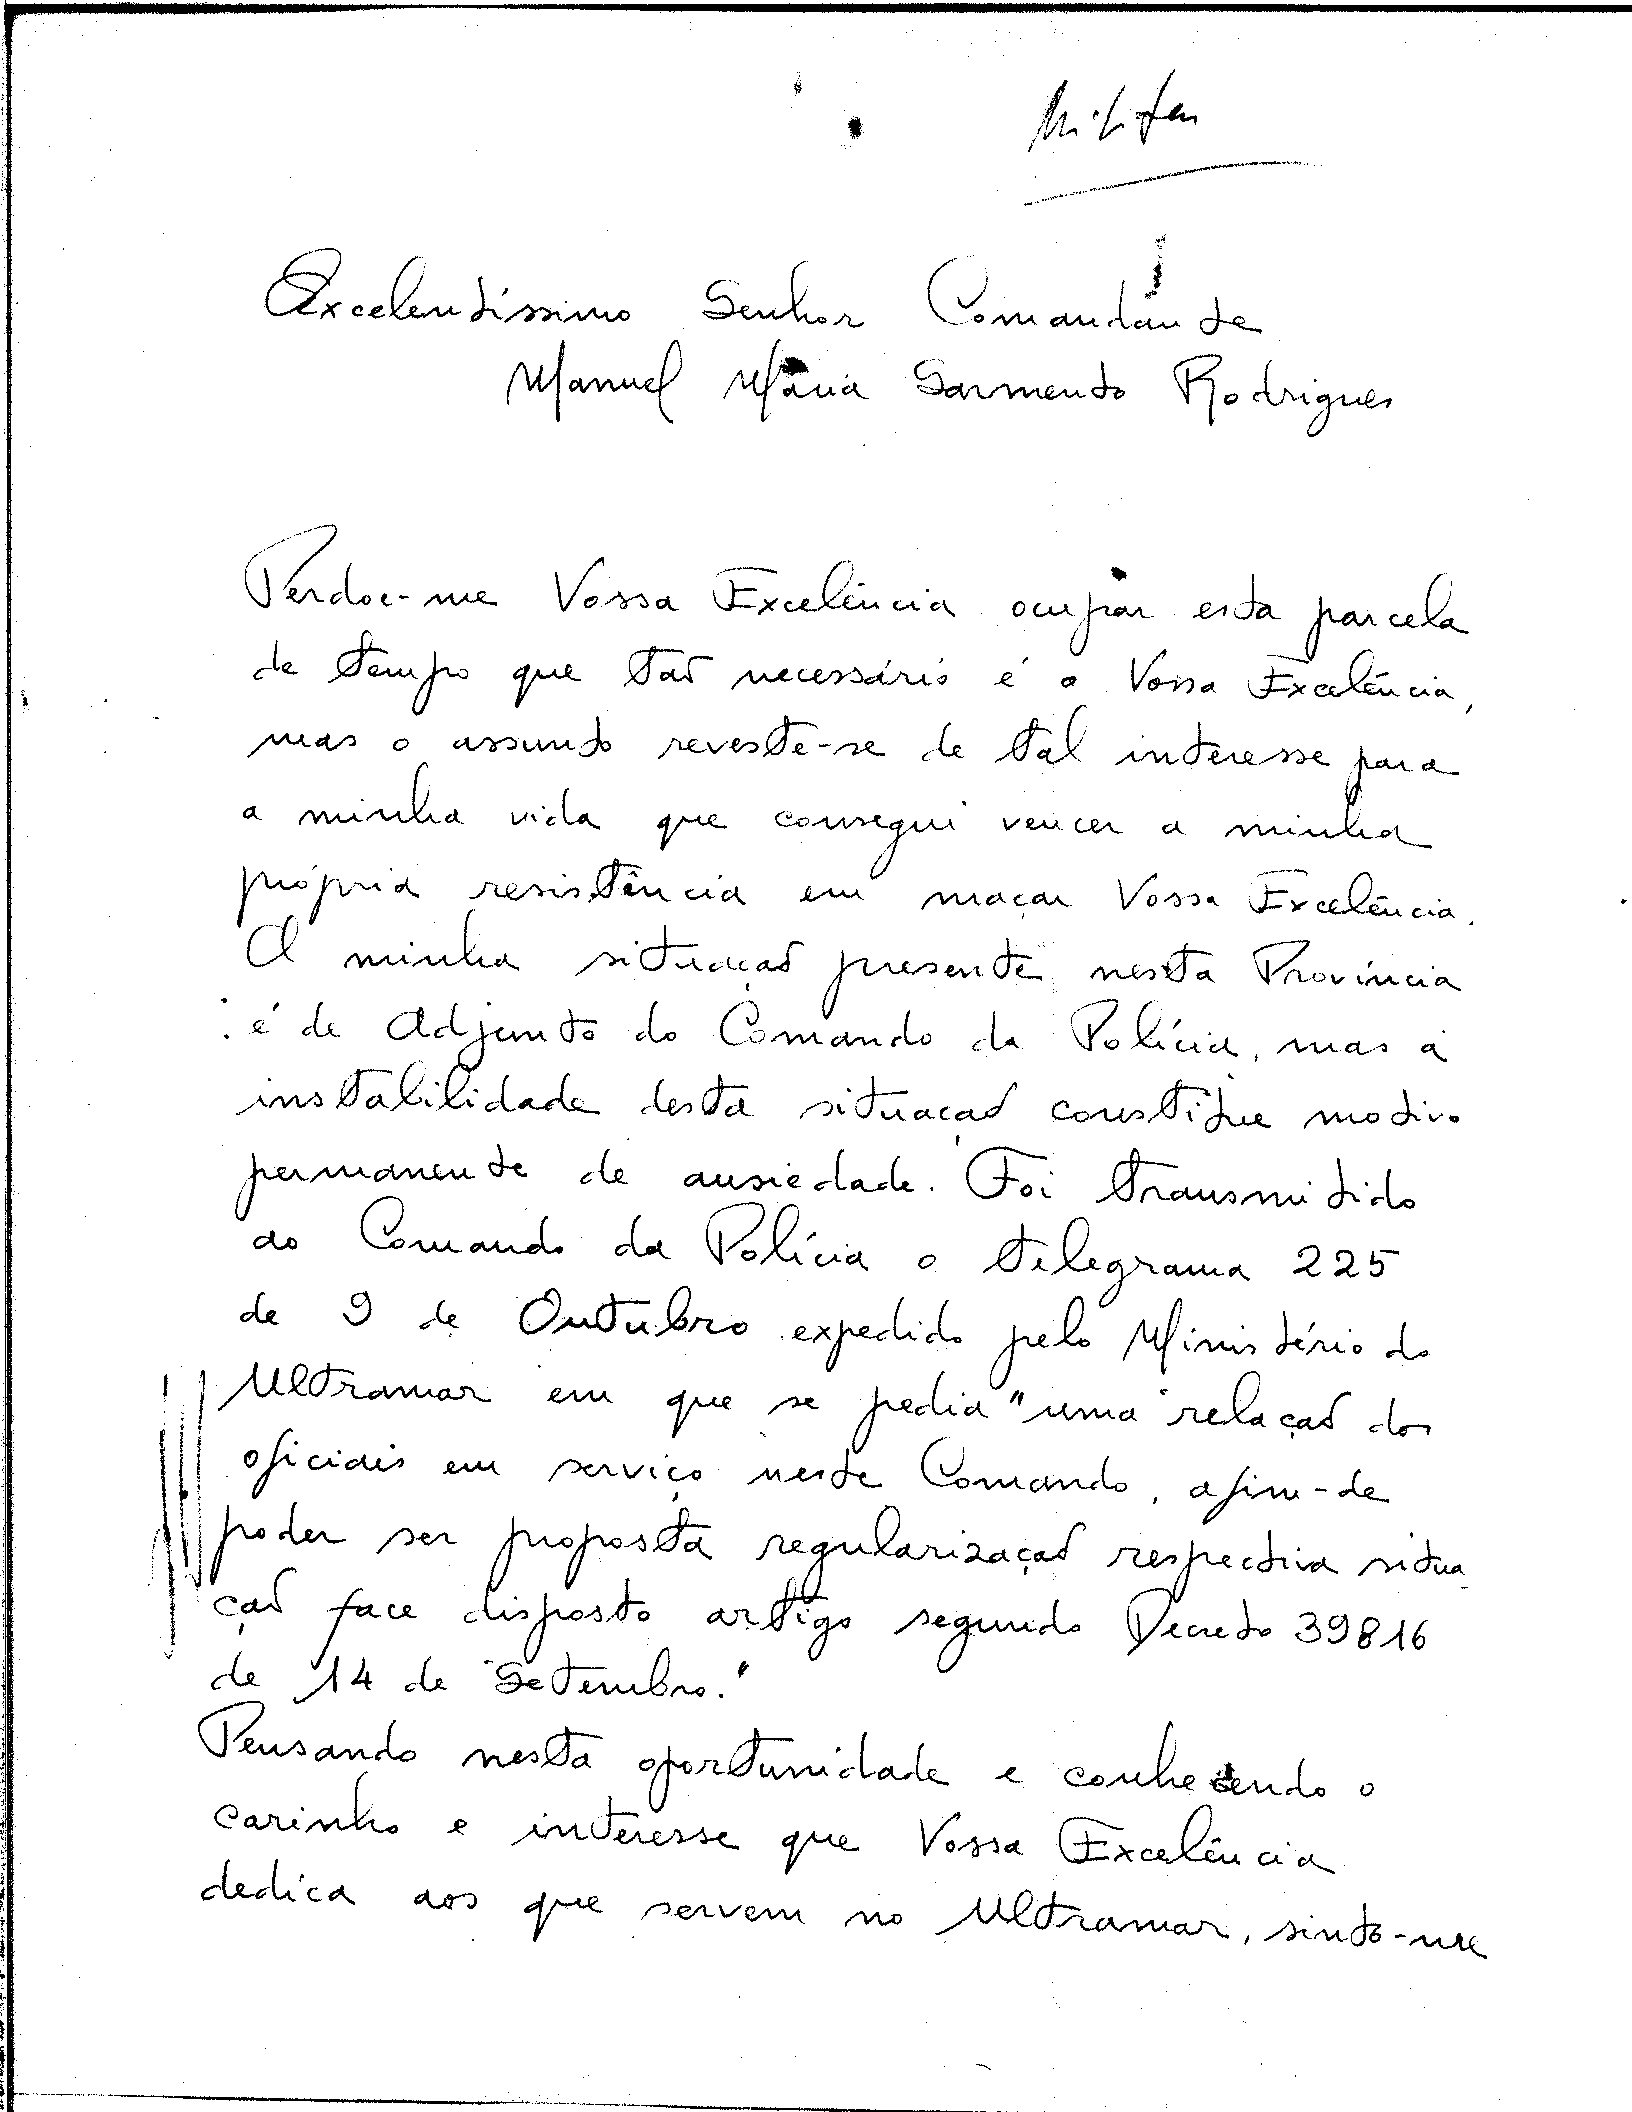 Excelentíssimo Senhor Comandante
Manuel Maria Sarmento Rodrigues
Perdoe-me Vossa Excelência ocupar esta parcela
de tempo que tão necessário é a Vossa Excelência,
mas o assunto reveste-se de tal interesse para
a minha vida que consegui vencer a minha
própria resistência em maçar Vossa Excelência.
A minha situação presente nesta Província
é de Adjunto do Comando da Polícia, mas a
instabilidade desta situação constitue motivo
permanente de ansiedade. Foi transmitido
ao Comando da Polícia o telegrama 225
de 9 de Outubro expedido pelo Ministério do
Ultramar em que se pedia "uma relação dos
oficiais em serviço neste Comando, afim-de
poder ser proposta regularização respectiva situa
ção face disposto artigo segundo Decreto 39816
de 14 de Setembro."
Pensando nesta oportunidade e conhecendo o
carinho e interesse que Vossa Excelência
dedica aos que servem no Ultramar, sinto-me